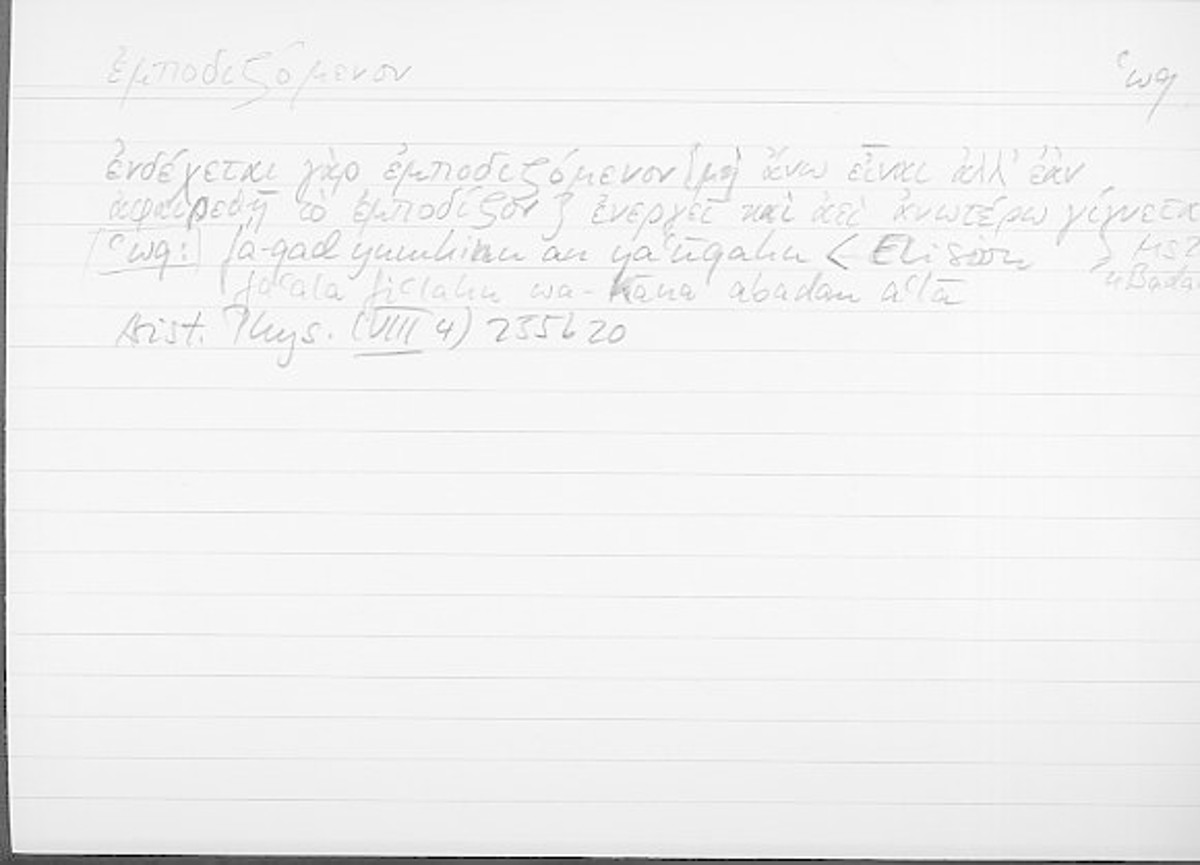 ἐμποδιζόμενον ʿwq
ἐνδέχεται γὰρ ἐμποδιζόμενον [μὴ ἄνω εἶναι ἀλλ' ἐὰν
ἀφαιρεθῇ τὸ ἐμποδίζον] ἐνεργεῖ καὶ ἀεὶ ἀνωτέρω γίγνετα
ʿwq: fa-qad yumkinu an yaʿūqahu < Elision > HSS
faʿala fiʿlahu wa-kāna abadan aʿlā u Bada
Arist. Phys. (VIII 4) 255b20